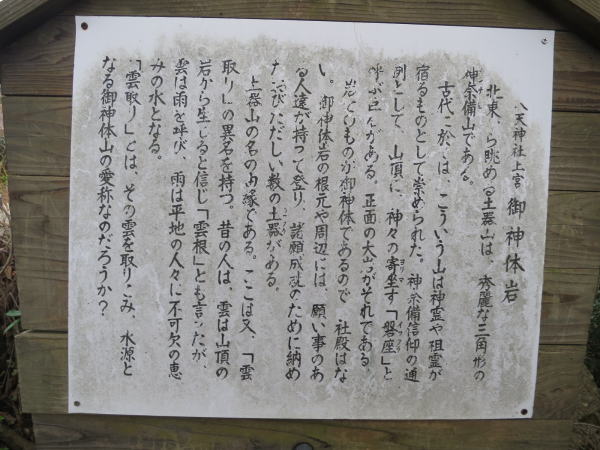 八天神社上宮 御神体岩
北東から眺める土器山は、秀麗な三角形の
神奈備山である。
古代に於ては、こういう山は神霊や祖霊が
宿るものとして崇められた。神奈備信仰の通
例として、山頂に、神々の寄坐す「磐座」と
ヨリマ イワクラ
呼ぶ巨岩がある。正面の大岩がそれである
岩そのものが御神体であるので、社殿はな
い。御神体岩の根元や周辺には、願い事のあ
る人達が持って登り、諸願成就のために納め
たおびただしい数の土器がある。
土器山の名の由縁である。ここは又、「雲
取り」の異名を持つ。昔の人は、雲は山頂の
岩から生じると信じ「雲根」とも言ったが、
雲は雨を呼び、雨は平地の人々に不可欠の恵
みの水となる。
「雲取り」とは、その雲を取りこみ、水源と
なる御神体山の愛称なのだろうか？